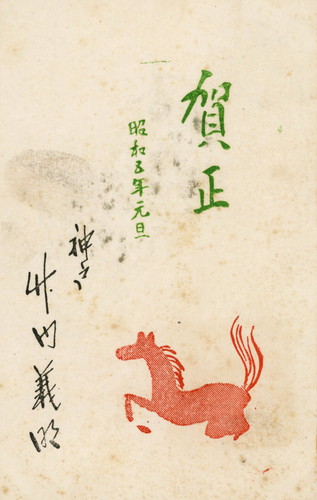 賀正
昭和五年元旦
神戸
竹内義明